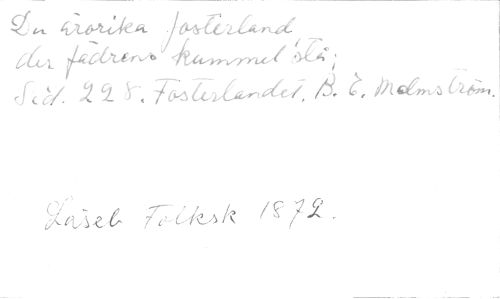 Du ärorika fosterland,
der fädrens kummel stå;
Sid. 228. Fosterlandet. B. E. Malmström.
Läseb Folksk 1872.